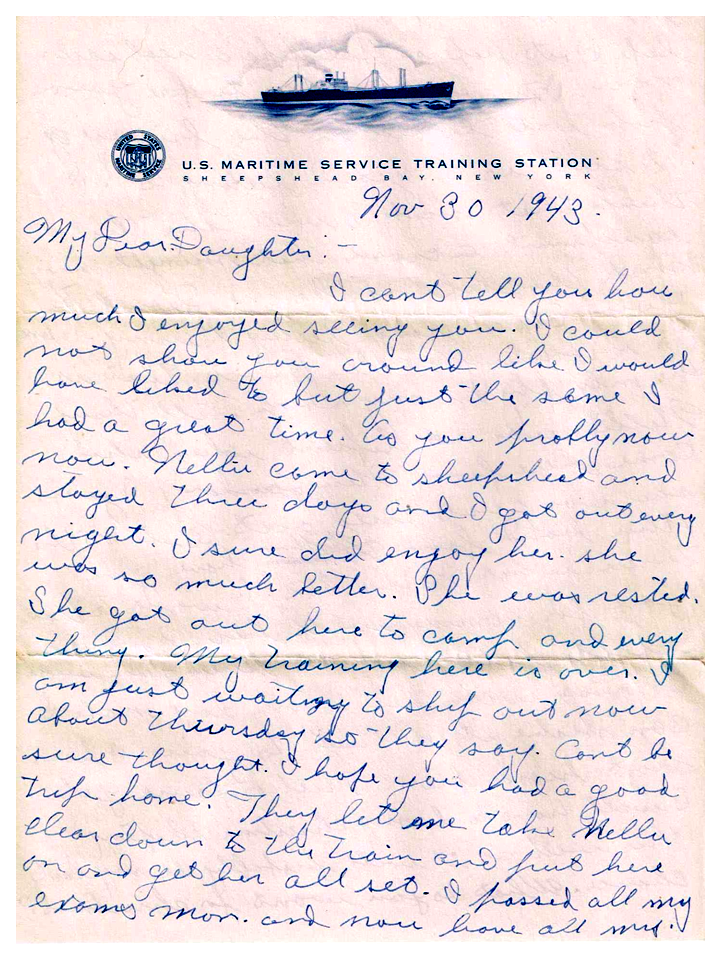 UNITED STATES MARITIME SERVICE
U.S. MARITIME SERVICE TRAINING STATION
SHEEPSHEAD BAY, NEW YORK
Nov 30 1943.
My Dear Daughter: —
I cant tell you how
much I enjoyed seeing you. I could
not show you around like I would
have liked to but just the same I
had a great time. As you problly now
now. Nellie come to sheepshead and
stayed three days and I got out every
night. I sure did enjoy her. she
was so much better. She was rested.
She got out here to camp and every
thing. My training here is over. I
am just waiting to ship out now
about Thursday so they say. Cant be
sure thought. I hope you had a good
trip home. They let me take Nellie
clear down to the train and put here
on and get her all set. I passed all my
exames Mon. and now have all my